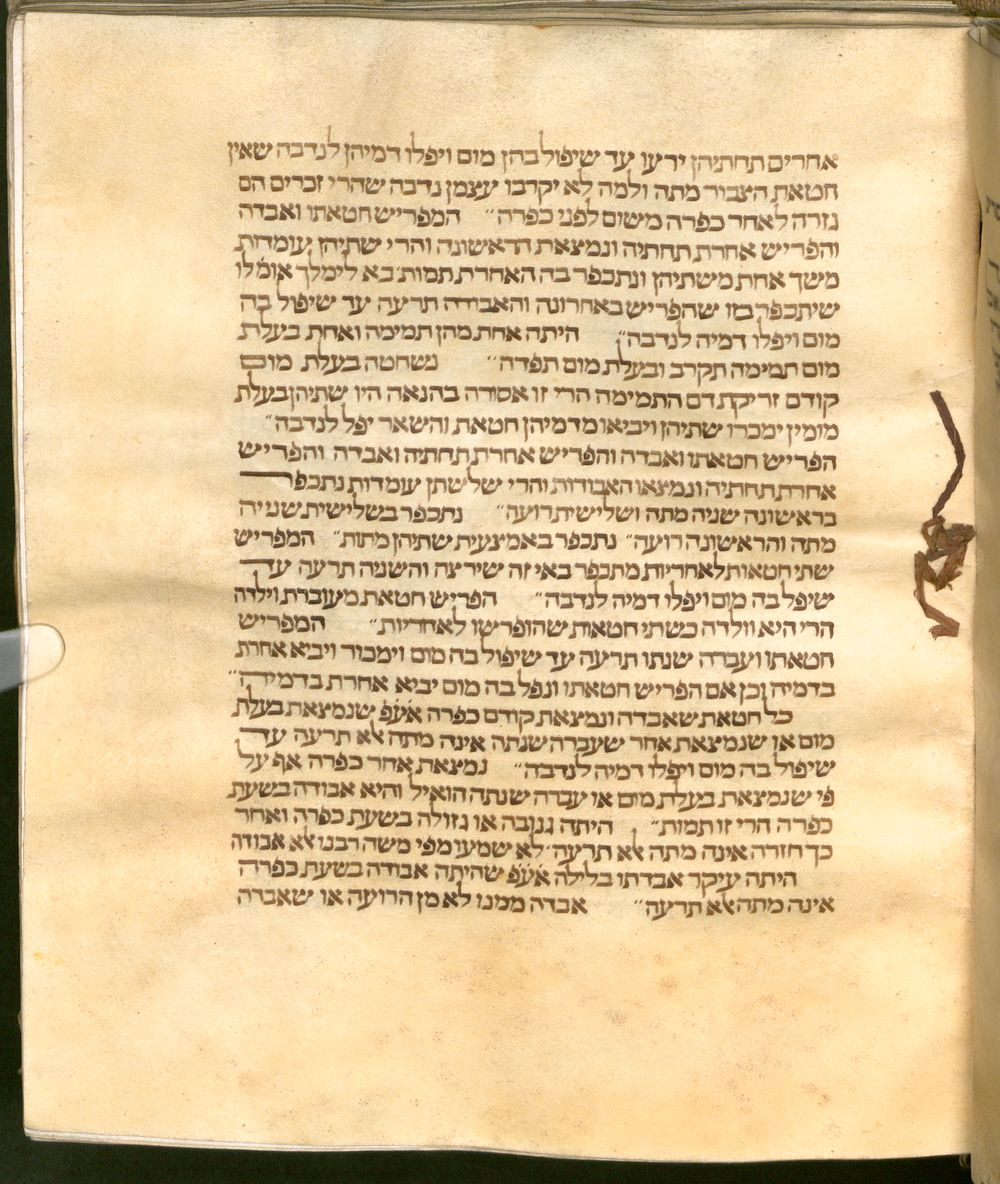 אחרים תחתיהן ירעו עד שיפול בהן מום ויפלו דמיהן לנדבה שאין
חטאת הצבור מתה ולמה לא יקרבו עצמן נדבה שהרי זכרים הם
גזרה לאחר כפרה משום לפני כפרה״ המפריש חטאתו ואבדה
והפריש אחרת תחתיה ונמצאת הראשונה והרי שתיהן עומדות
משך אחת משתיהן ונתכפר בה האחרת תמות׳ בא לימלך אומ׳ לו
שיתכפר בזו שהפריש באחרונה והאבודה תרעה עד שיפול בה
מום ויפלו דמיה לנדבה״ היתה אחת מהן תמימה ואחת בעלת
מום תמימה תקרב ובעלת מום תפדה״ נשחטה בעלת מום
קודם זריקת דם התמימה הרי זו אסורה בהנאה היו שתיהן בעלת
מומין ימכרו שתיהן ויביאו מדמיהן חטאת והשאר יפל לנדבה״
הפריש חטאתו ואבדה והפריש אחרת תחתיה ואבדה והפריש
אחרת תחתיה ונמצאו האבודות והרי שלשתן עומדות נתכפר
בראשונה שניה מתה ושלישית רועה״ נתכפר בשלישית שניה
מתה והראשונה רועה״ נתכפר באמצעית שתיהן מתות״ המפריש
שתי חטאות לאחריות מתכפר באי זה שירצה והשניה תרעה עד
שיפל בה מום ויפלו דמיה לנדבה״ הפריש חטאת מעוברת וילדה
הרי היא וולדה כשתי חטאות שהופרשו לאחריות״ המפריש
חטאתו ועברה שנתו תרעה עד שיפול בה מום וימכור ויביא אחרת
בדמיה וכן אם הפריש חטאתו ונפל בה מום יביא אחרת בדמיה״
כל חטאת שאבדה ונמצאת קודם כפרה אע״פ שנמצאת בעלת
מום או שנמצאת אחר שעברה שנתה אינה מתה אלא תרעה עד
שיפול בה מום ויפלו דמיה לנדבה״ נמצאת אחר כפרה אף על
פי שנמצאת בעלת מום או עברה שנתה הואיל והיא אבודה בשעת
כפרה הרי זו תמות״ היתה גנובה או גזולה בשעת כפרה ואחר
כך חזרה אינה מתה אלא תרעה׳ לא שמעו מפי משה רבנו אלא אבודה
היתה עיקר אבדתו בלילה אע״פ שהיתה אבודה בשעת כפרה
אינה מתה אלא תרעה״ אבדה ממנו לא מן הרועה או שאבדה